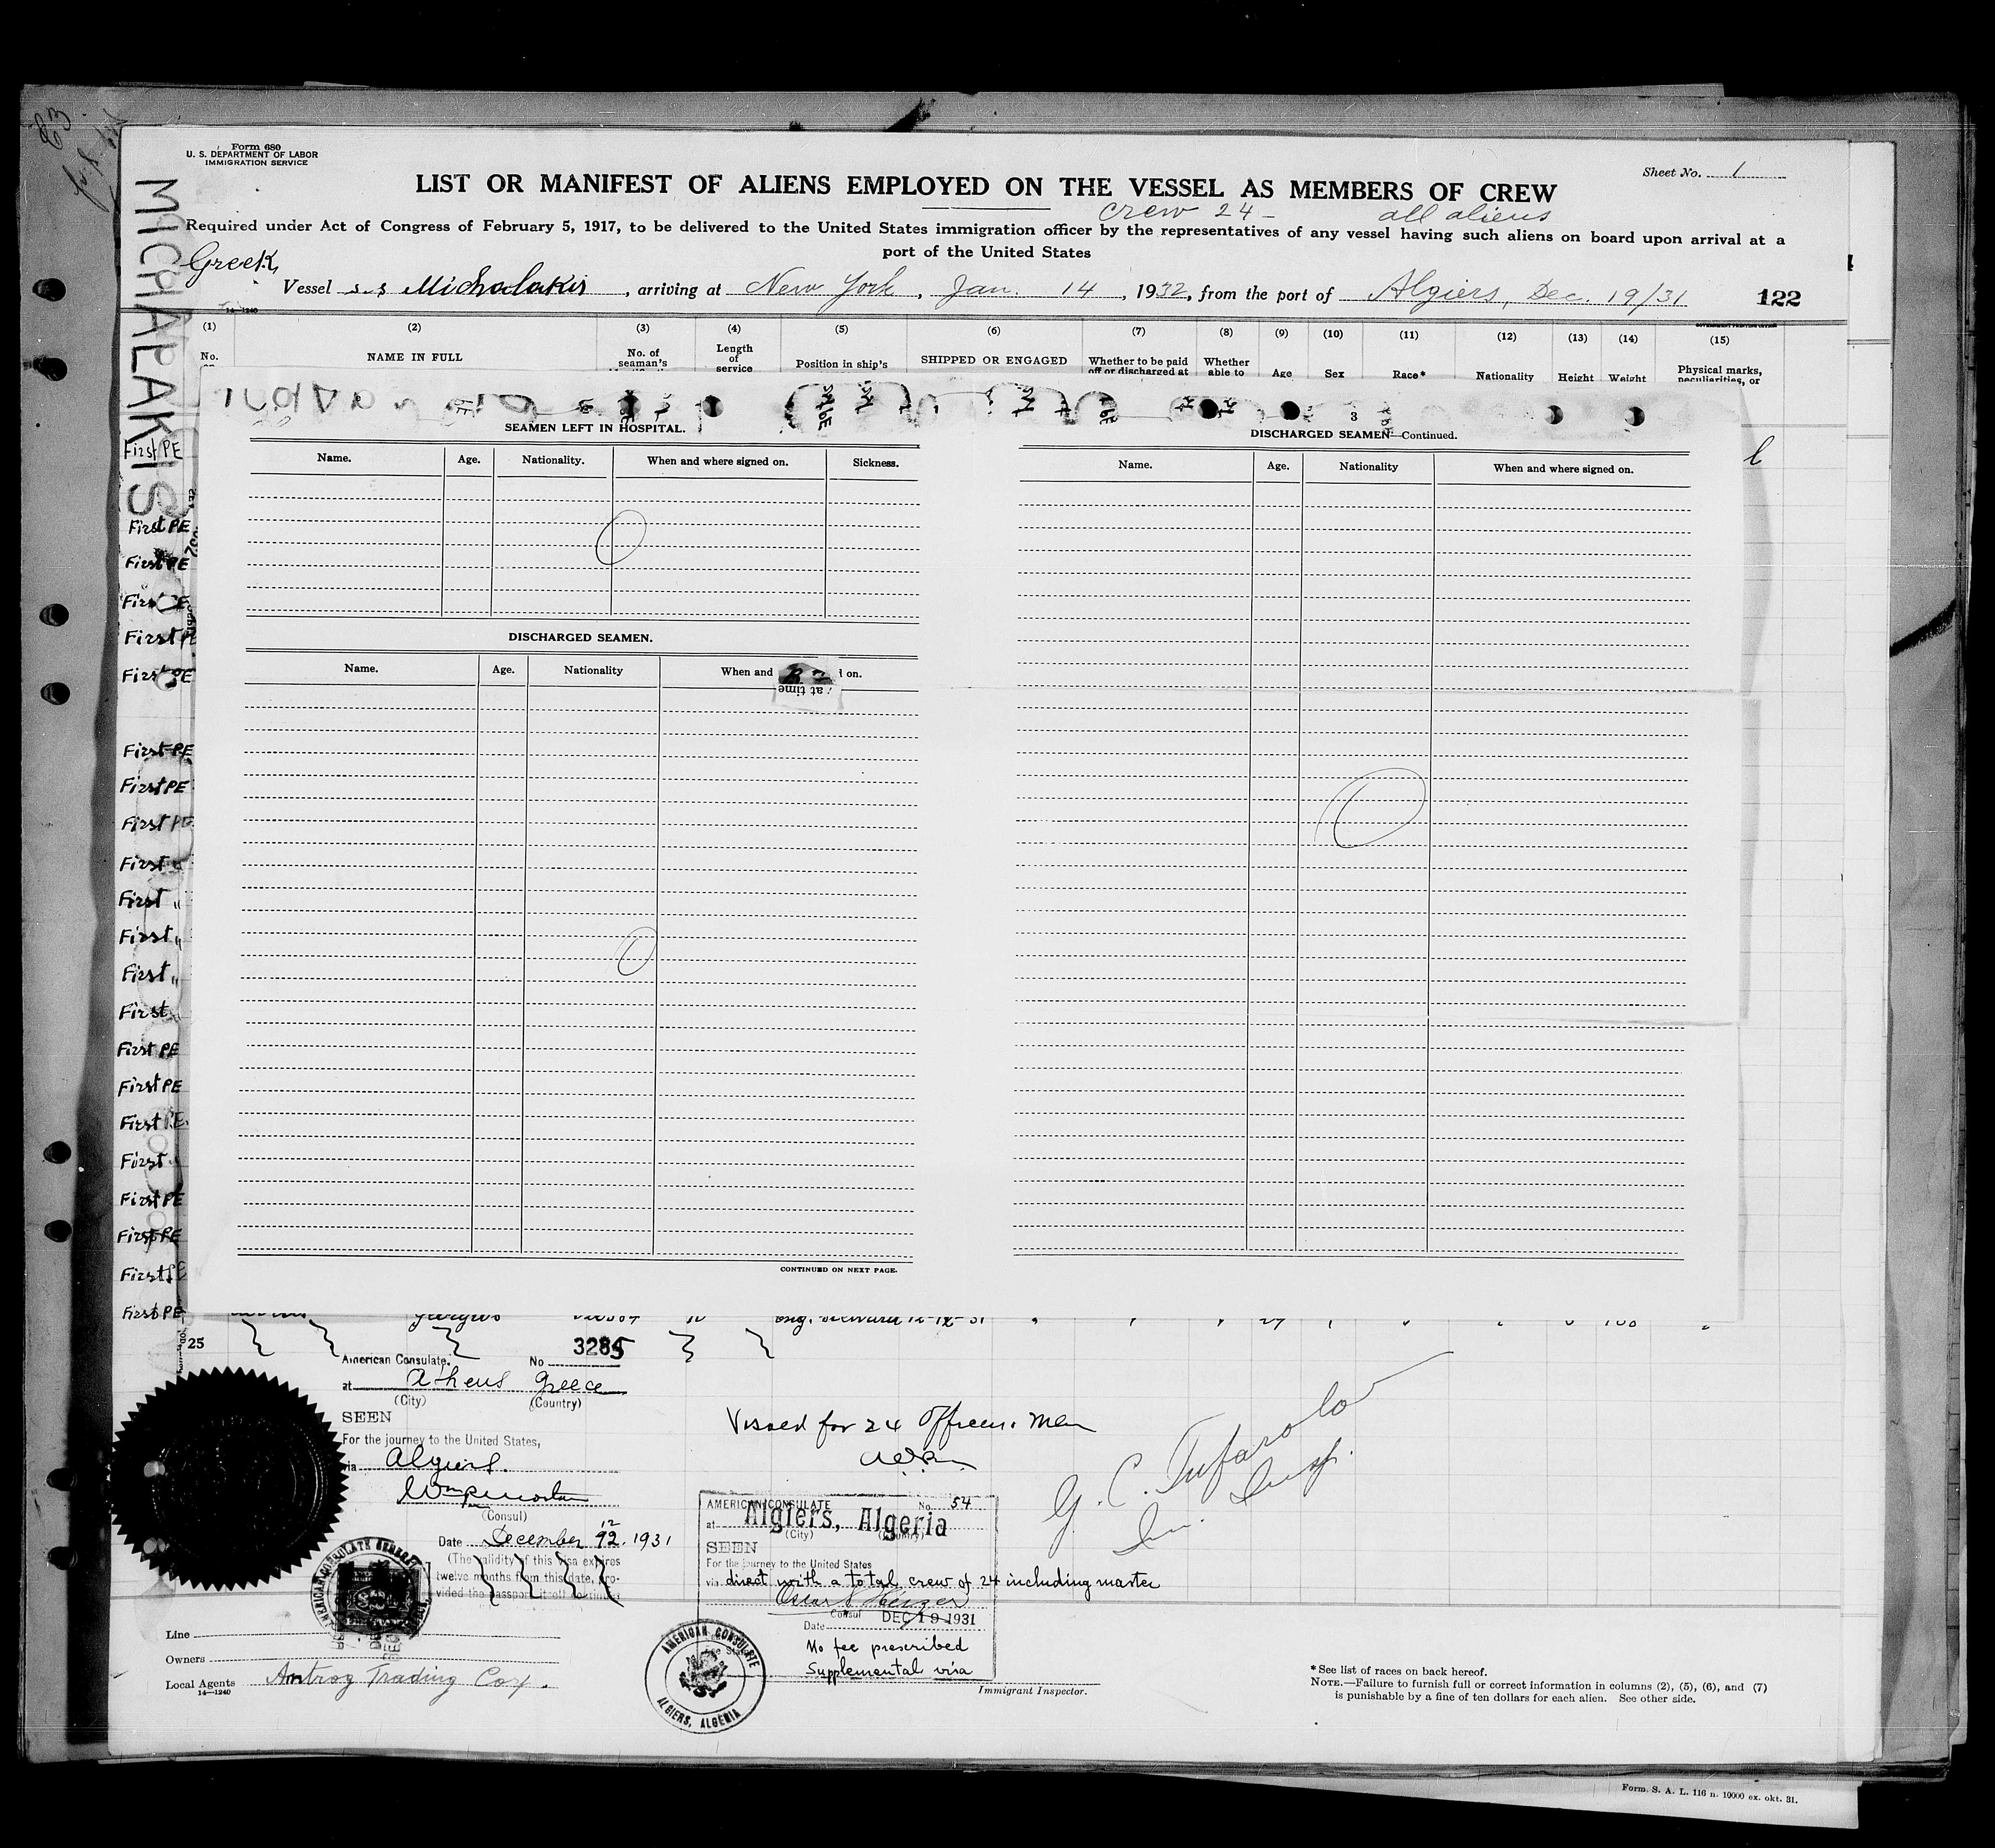 Form 680
U. S. DEPARTMENT OF LABOR
IMMIGRATION SERVICE
Sheet No. 1
LIST OR MANIFEST OF ALIENS EMPLOYED ON THE VESSEL AS MEMBERS OF CREW
crew 24 - all aliens
Required under Act of Congress of February 5, 1917, to be delivered to the United States immigration officer by the representatives of any vessel having such aliens on board upon arrival at a
port of the United States
Greek
Vessel s.s Michalakis, arriving at New York, Jan. 14, 1932, from the port of Algiers, Dec. 19/31 122
14-1240
MICHALAKIS
(1) (2) (3) (4) (5) (6) (7) (8) (9) (10) (11) (12) (13) (14) (15)
No. NAME IN FULL No. of seaman's Length of service Position in ship's SHIPPED OR ENGAGED Whether to be paid off or discharged at Whether able to Age Sex Race* Nationality Height Weight Physical marks, peculiarities, or
3
SEAMEN LEFT IN HOSPITAL.
Name. Age. Nationality. When and where signed on. Sickness.
DISCHARGED SEAMEN—Continued.
Name. Age. Nationality When and where signed on.
DISCHARGED SEAMEN.
Name. Age. Nationality When and d on.
at time
CONTINUED ON NEXT PAGE.
First PE
First PE
First PE
First PE
First PE
First PE
First PE
First PE
First PE
First "
First "
First "
First "
First
First PE
First PE
First P.E.
First
First PE
First PE
First PE
First PE
25
American Consulate. No 3285
at Athens Greece
(City) (Country)
SEEN
For the journey to the United States,
via Algiers.
(Consul)
Date December 12. 1931
(The validity of this visa expires
twelve months from this date, pro-
vided the passport itself continues
Visaed for 24 Officers & Men
G. C. Tufarolo
Im. Insp.
AMERICAN CONSULATE No. 54
at Algiers, Algeria
(City) (Country)
SEEN
For the journey to the United States
via direct with a total crew of 24 including master
Consul
Date DEC 19 1931
No fee prescribed
Supplemental visa
AMERICAN CONSULATE
ALGIERS, ALGERIA
Immigrant Inspector.
Line
Owners
Local Agents Antrog Trading Coy.
14-1240
* See list of races on back hereof.
NOTE.—Failure to furnish full or correct information in columns (2), (5), (6), and (7)
is punishable by a fine of ten dollars for each alien. See other side.
Form. S. A. L. 116 n. 10000 ex. okt. 31.